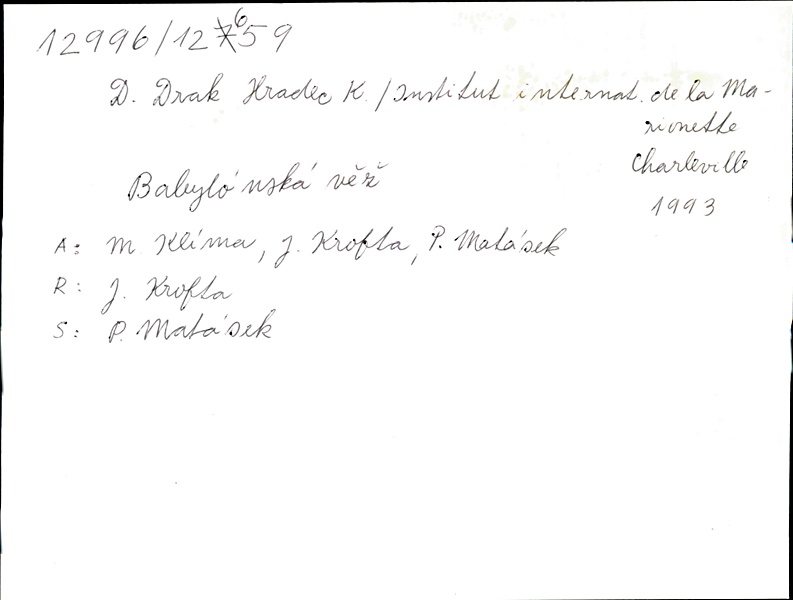 12996/12659
D. Drak Hradec K. / Institut internat. de la Ma-
rionette
Charleville
1993
Babylónská věž
A: M. Klíma, J. Krofta, P. Matásek
R: J. Krofta
S: P. Matásek